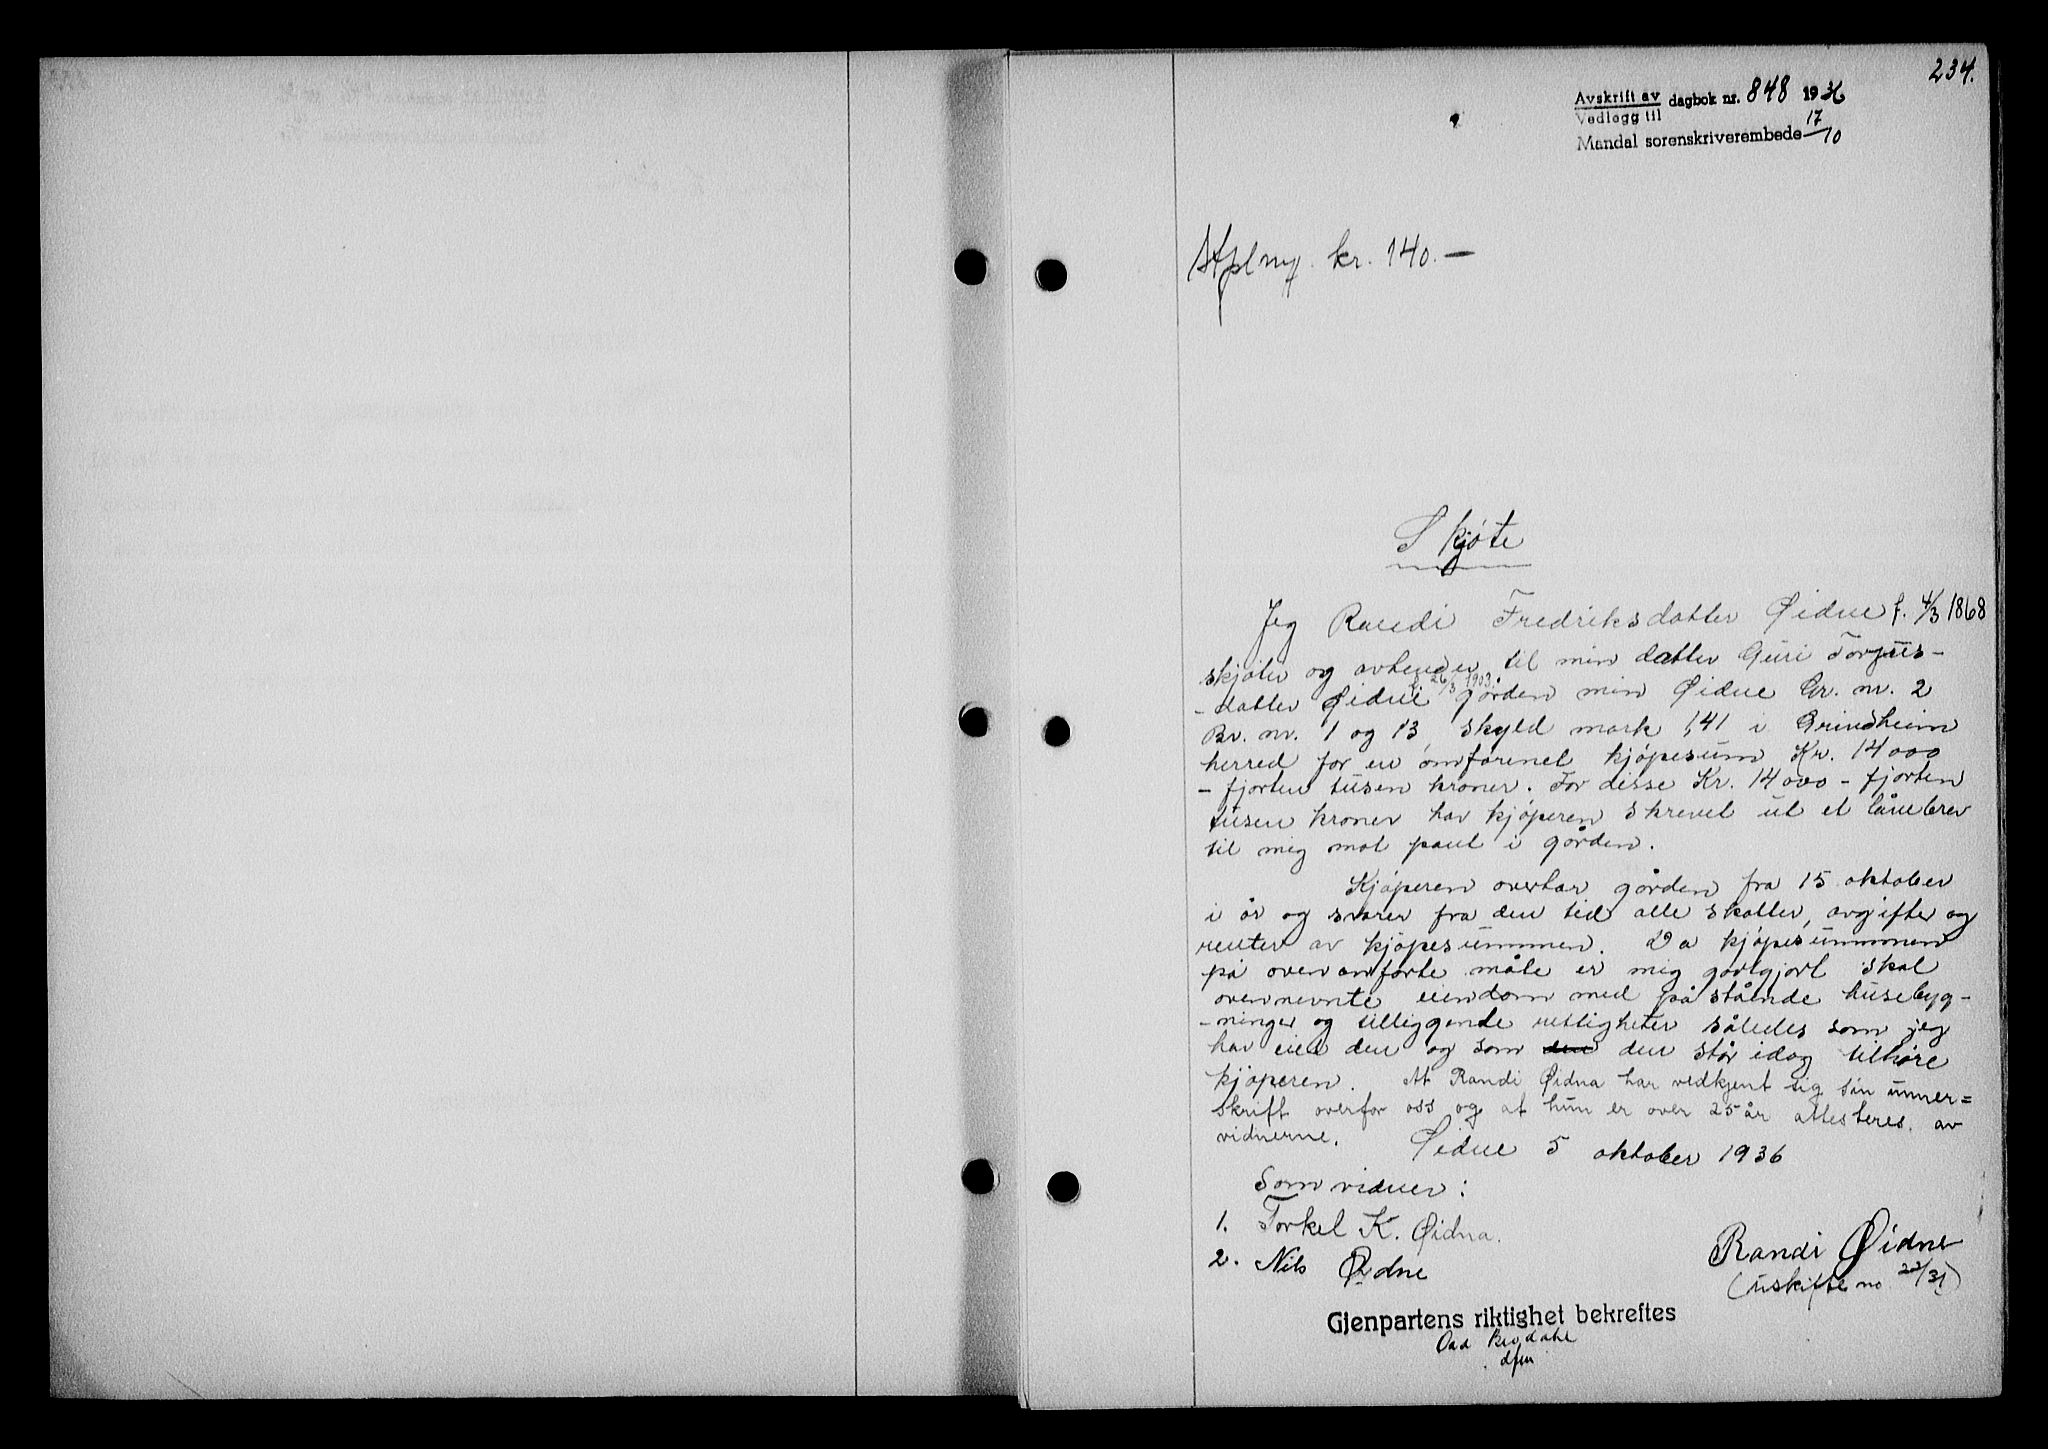 234.
Avskrift av dagbok nr. 848 1936
Vedlegg til
Mandal sorenskriverembede 17/10
kr. 140.—
Skjøte
Jeg Randi Fredriksdatter Øidne f. 4/3 1868
skjøter og avhender til min datter Guri Torjus-
-datter Øidne f. 26/3 1903. gården min Øidne Gr. nr. 2
Br. nr. 1 og 13 skyld mark 1,41 i Grindheim
herred for en omforenet kjøpesum Kr. 14000
- fjorten tusen kroner. For disse Kr. 14000 - fjorten
tusen kroner har kjøperen skrevet ut et lånebrev
til mig mot pant i gården.
Kjøperen overtar gården fra 15 oktober
i år og svarer fra den tid alle skatter, avgifter og
renter av kjøpesummen. Da kjøpesummen
på ovenanførte måte er mig godtgjort skal
ovennevnte eiendom med påstående husebyg-
-ninger og tilliggende rettigheter således som jeg
har eiet den og som den den står idag tilhøre
kjøperen. At Randi Øidna har vedkjent sig sin unner=
skrift overfor oss og at hun er over 25 år attesteres av
vidnerne.
Øidne 5 oktober 1936
Som vidner:
1. Torkel K. Øidna.
2. Nils Øidne
Randi Øidne
(uskifte no 22/31)
Gjenpartens riktighet bekreftes